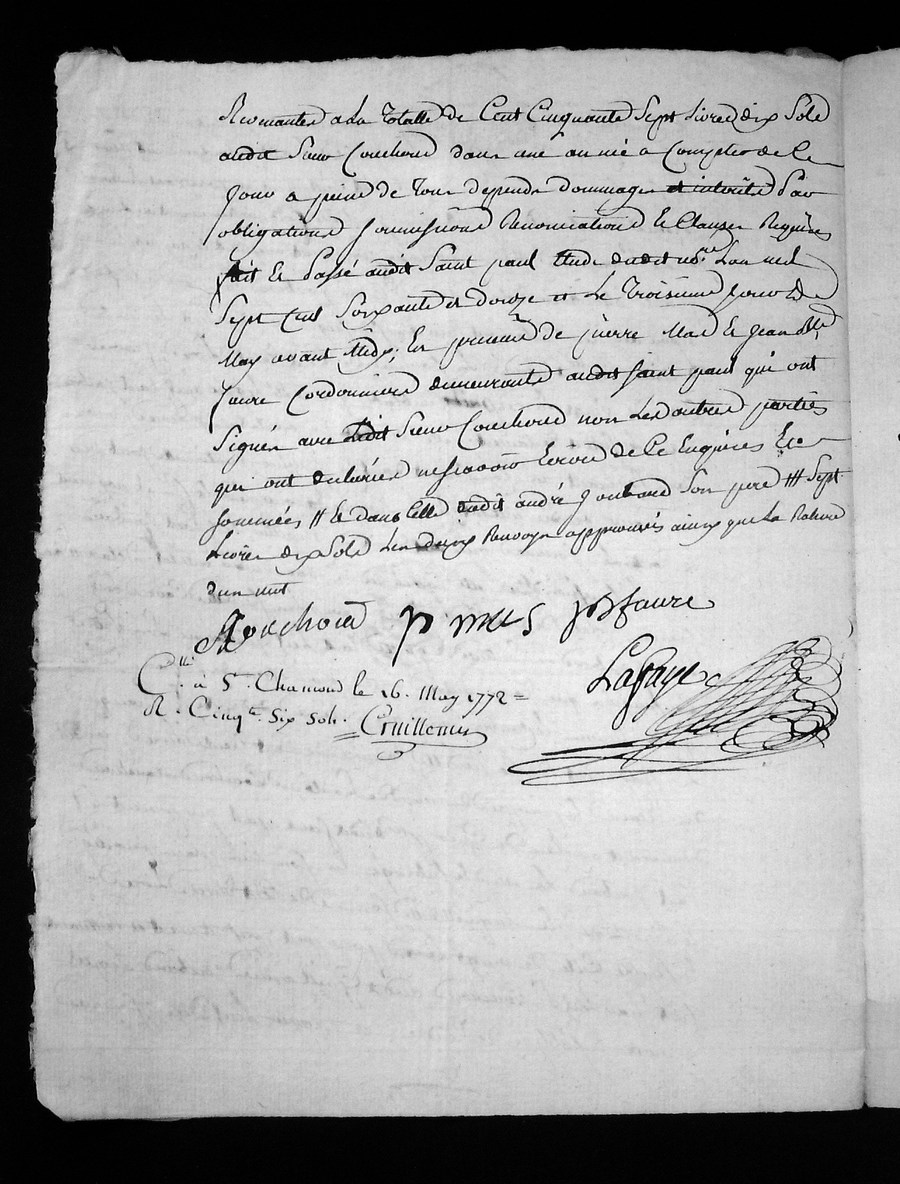 Revenantes a la Totalle de Cent Cinquante Sept Livres dix Sols
audit Sieur Couchoud dans une année a Compter de Ce
Jour a peine de Tous depends dommages et interets Par
obligations soumissions Renonciations et Clauses Requises
fait et Passé audit Saint paul Etude dudit no.re L'an mil
Sept Cent Soixante et douze et Le Troisieme Jour de
May avant Midy; En presence de pierre Mas et Jean B.te
faure Cordonniers demeurants audit saint paul qui ont
Signés avec Ledit Sieur Couchoud non Les autres parties
qui ont declarées ne scavoir Ecrire de Ce Enquises Et
sommées // Et dans Celle dudit andré son pere /// Sept
Livres dix Sols Les deux Renvoys approuvés ainsy que La Rature
d'un mot
Couchoud p mas jB faure
C.llé à St. Chamond le 16. May 1772 =
Lafaye
R. Cinq.te Six sols.